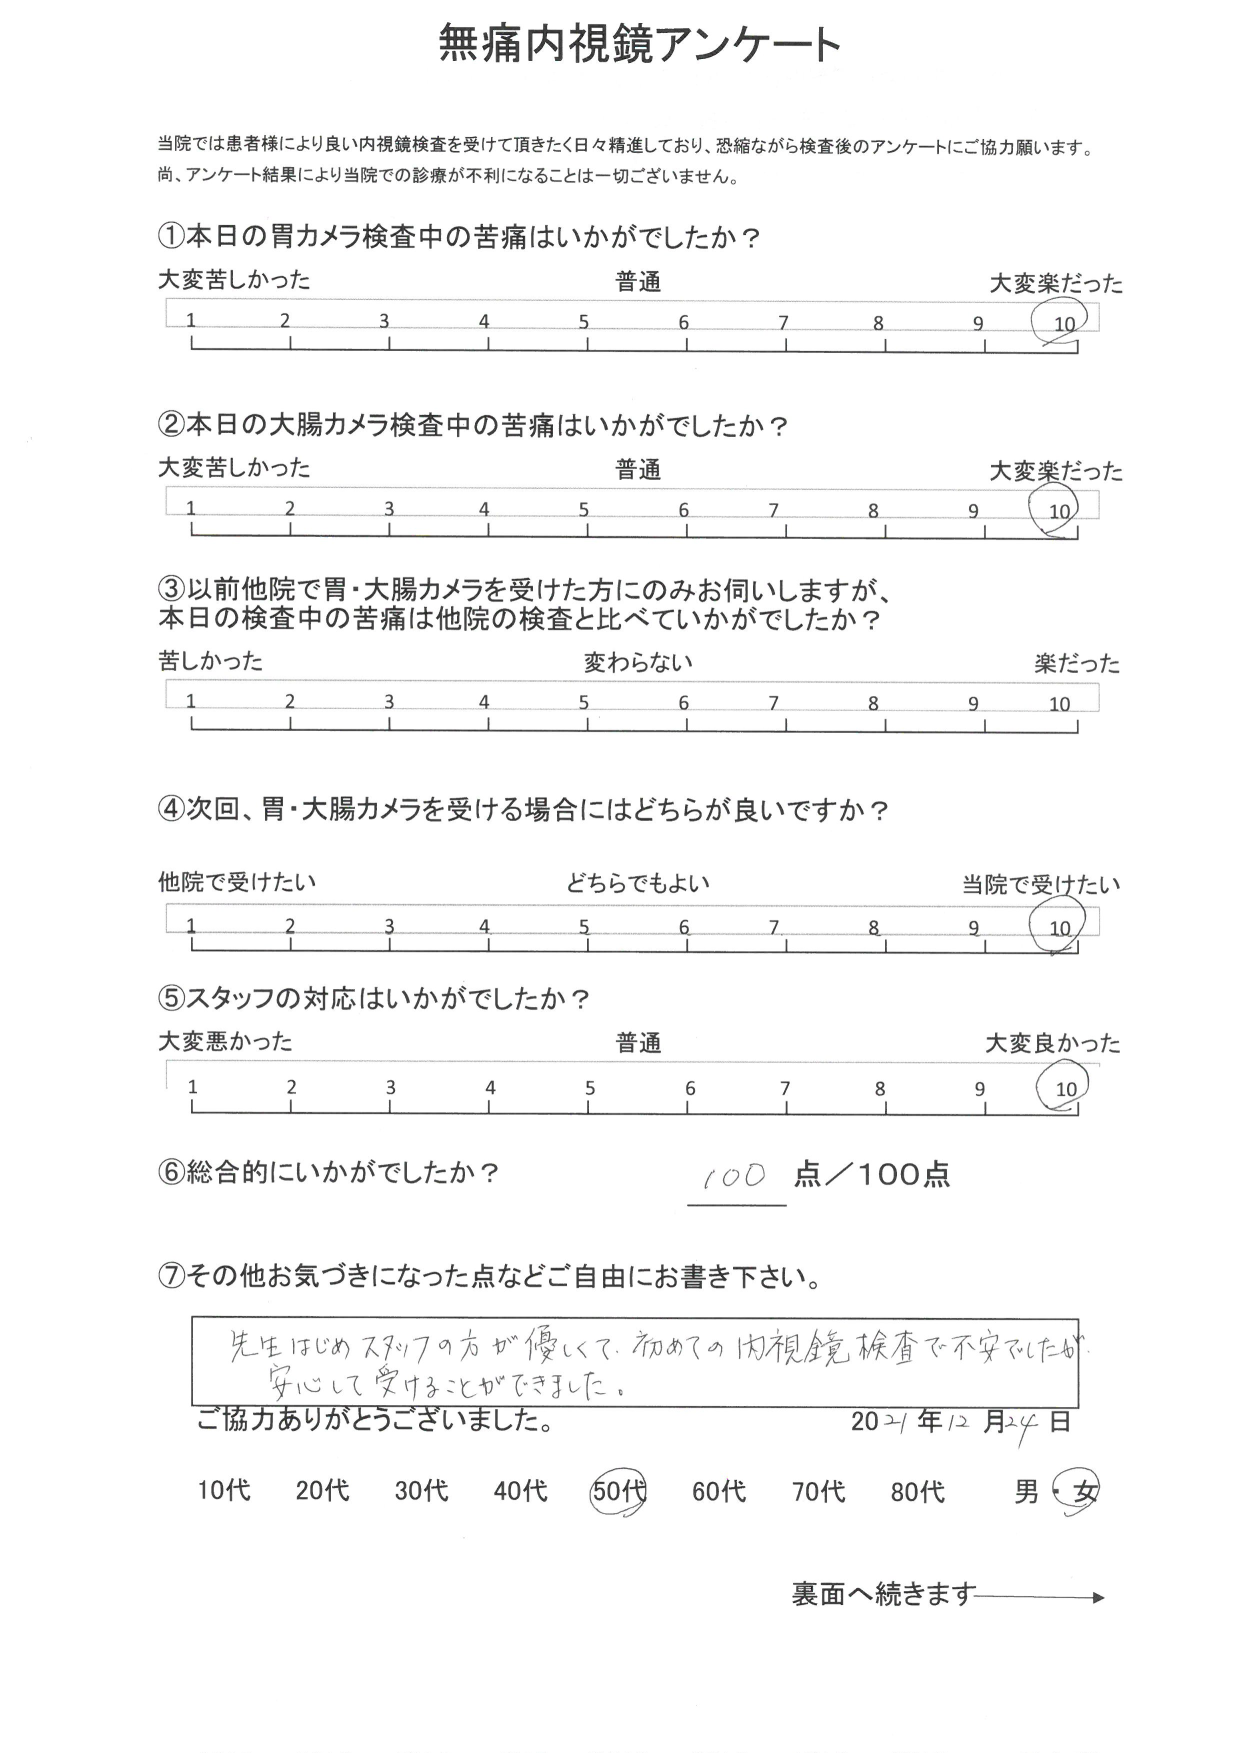 無痛内視鏡アンケート
当院では患者様により良い内視鏡検査を受けて頂きたく日々精進しており、恐縮ながら検査後のアンケートにご協力願います。
尚、アンケート結果により当院での診療が不利になることは一切ございません。
①本日の胃カメラ検査中の苦痛はいかがでしたか？
大変苦しかった 普通 大変楽だった
1 2 3 4 5 6 7 8 9 10
②本日の大腸カメラ検査中の苦痛はいかがでしたか？
大変苦しかった 普通 大変楽だった
1 2 3 4 5 6 7 8 9 10
③以前他院で胃・大腸カメラを受けた方にのみお伺いしますが、
本日の検査中の苦痛は他院の検査と比べていかがでしたか？
苦しかった 変わらない 楽だった
1 2 3 4 5 6 7 8 9 10
④次回、胃・大腸カメラを受ける場合にはどちらが良いですか？
他院で受けたい どちらでもよい 当院で受けたい
1 2 3 4 5 6 7 8 9 10
⑤スタッフの対応はいかがでしたか？
大変悪かった 普通 大変良かった
1 2 3 4 5 6 7 8 9 10
⑥総合的にいかがでしたか？ 100 点／100点
⑦その他お気づきになった点などご自由にお書き下さい。
先生はじめスタッフの方が優しくて、初めての内視鏡検査で不安でしたが、
安心して受けることができました。
ご協力ありがとうございました。 2021年12月24日
10代 20代 30代 40代 50代 60代 70代 80代 男・女
裏面へ続きます